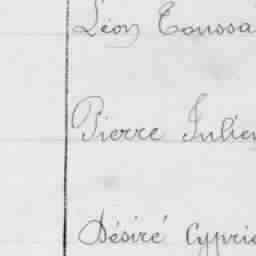 Léon Toussa
Pierre Julien
Désiré Cyprie